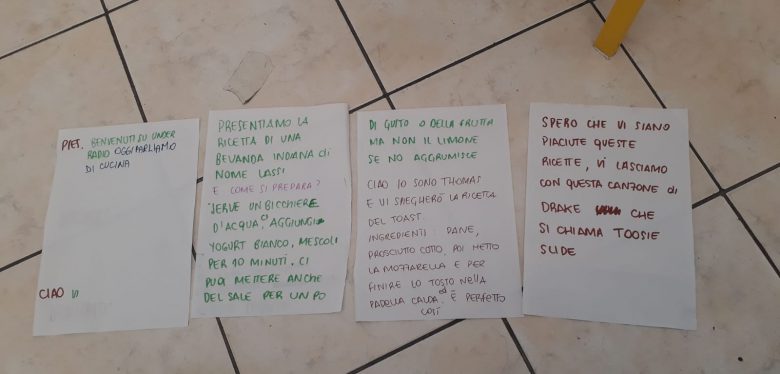 PRES. BENVENUTI SU UNDER
RADIO OGGI PARLIAMO
DI CUCINA
CIAO VI
PRESENTIAMO LA
RICETTA DI UNA
BEVANDA INDIANA di
NOME LASSI
E COME SI PREPARA?
SERVE UN BICCHIERE
D'ACQUA, CI AGGIUNGI
YOGURT BIANCO, MESCOLI
PER 10 MINUTI, CI
PUOI METTERE ANCHE
DEL SALE PER UN PO
DI GUSTO O DELLA FRUTTA
MA NON IL LIMONE
SE NO AGGRUMISCE
CIAO IO SONO THOMAS
E VI SPIEGHERÒ LA RICETTA
DEL TOAST.
INGREDIENTI: PANE,
PROSCIUTTO COTTO, POI METTO
LA MOZZARELLA E PER
FINIRE LO TOSTO NELLA
PADELLA CALDA ed È PERFETTO
COSÌ
SPERO CHE VI SIANO
PIACIUTE QUESTE
RICETTE, VI LASCIAMO
CON QUESTA CANZONE di
DRAKE CHE
SI CHIAMA TOOSIE
SLIDE